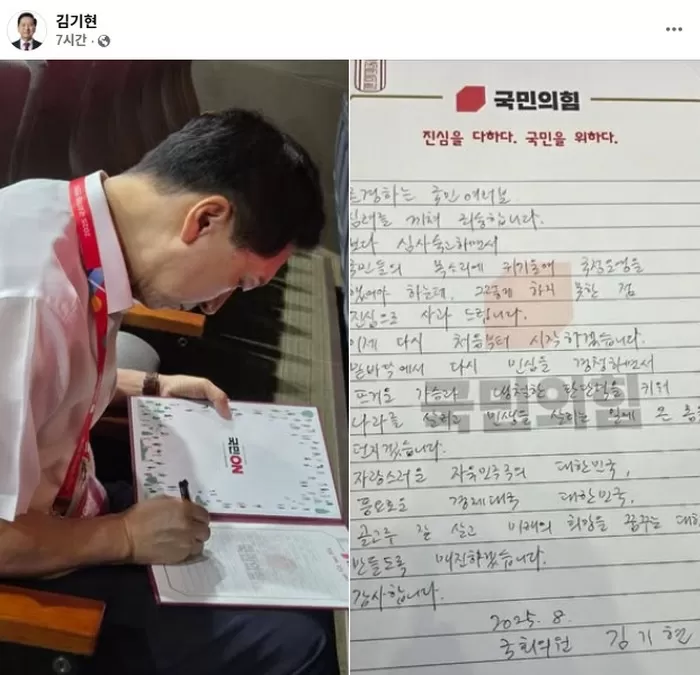 김기현
7시간 ·
국민ON
국민의힘
진심을 다하다. 국민을 위하다.
존경하는 국민 여러분
심려를 끼쳐 죄송합니다.
보다 심사숙고하면서
국민들의 목소리에 귀기울여 국정운영을
했어야 하는데, 그렇게 하지 못한 점
진심으로 사과 드립니다.
이제 다시 처음부터 시작하겠습니다.
밑바닥에서 다시 민심을 경청하면서
뜨거운 가슴과 냉철한 판단력을 키워
나라를 살리고 민생을 살리는 일에 온 몸
던지겠습니다.
자랑스러운 자유민주주의 대한민국,
풍요로운 경제대국 대한민국,
골고루 잘 살고 미래의 희망을 꿈꾸는 대한
만들도록 매진하겠습니다.
감사합니다.
2025. 8.
국회의원 김기현
국민의힘